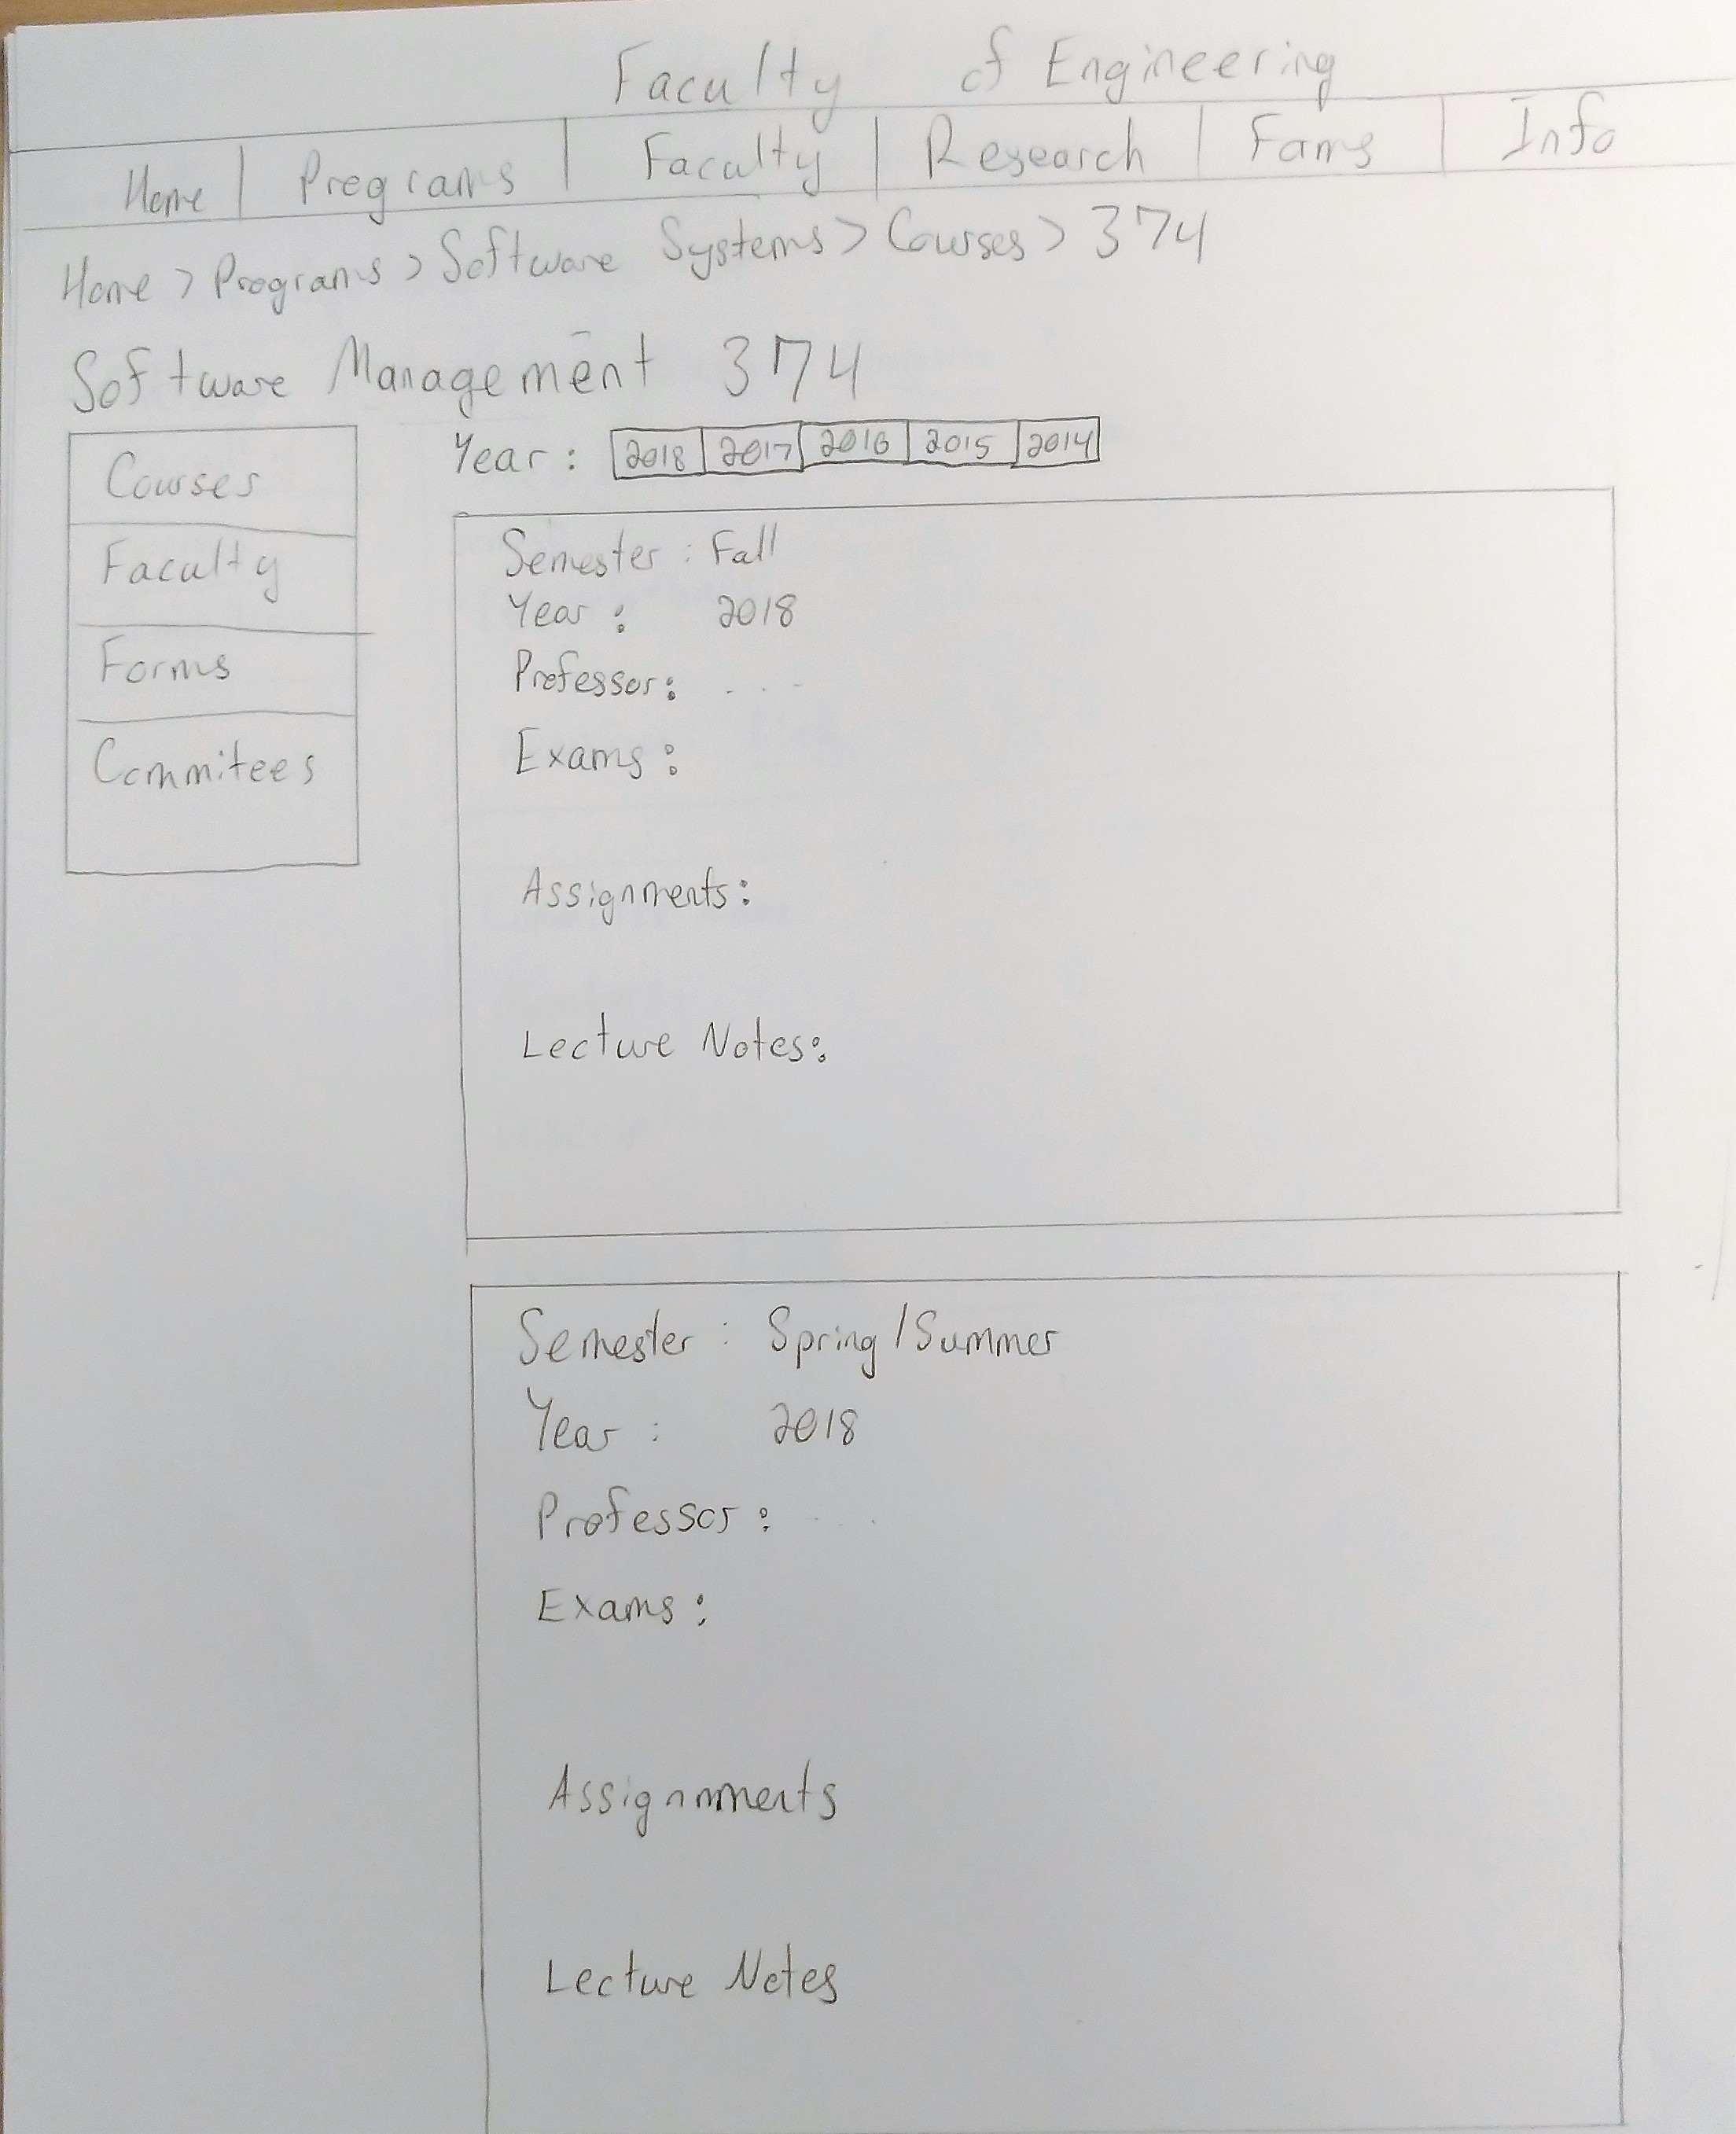 Faculty of Engineering
Home | Programs | Faculty | Research | Fams | Info
Home > Programs > Software Systems > Courses > 374
Software Management 374
Year : 2018 2017 2016 2015 2014
Courses
Faculty
Forms
Commitees
Semester : Fall
Year : 2018
Professor: ...
Exams :
Assignments:
Lecture Notes:
Semester : Spring/Summer
Year : 2018
Professor : ...
Exams :
Assignmments
Lecture Notes